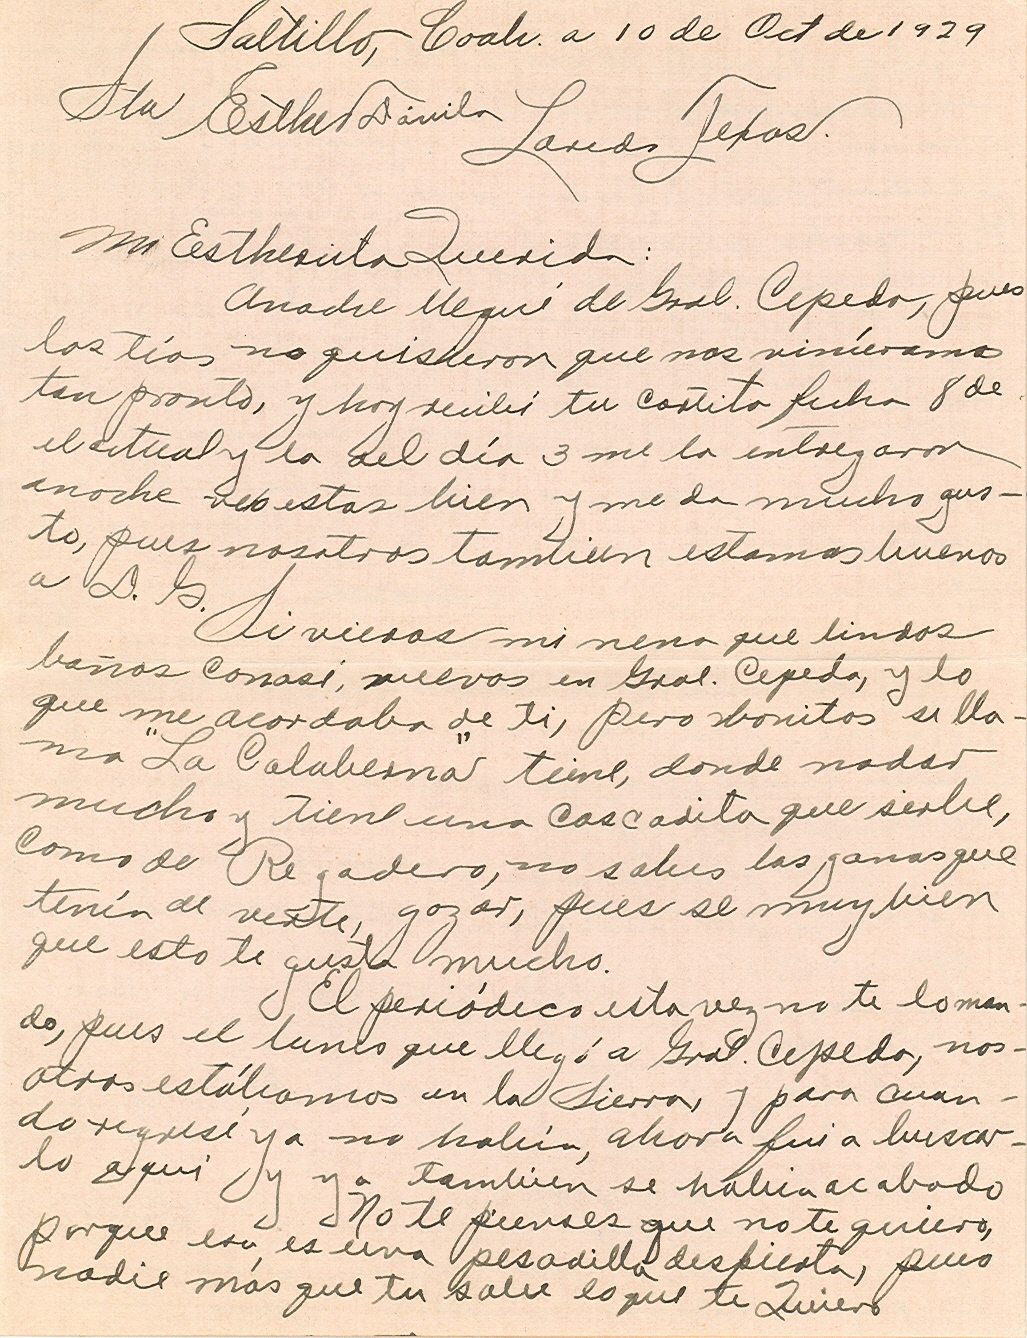 Saltillo, Coah. a 10 de Oct de 1929
Sta Esther Dávila Laredo Texas.
Mi Esthersita Querida:
Anoche llegué de Gral. Cepeda, pues
los tíos no quisieron que nos viniéramos
tan pronto, y hoy recibí tu cartita fecha 8 de
el actual y la del día 3 me la entregaron
anoche veo estas bien y me da mucho gus-
to, pues nosotros tambien estamos buenos
a D. G.
Si vieras mi nena que lindos
baños conosí, nuevos en Gral. Cepeda, y lo
que me acordaba de ti, pero bonitos se lla-
ma "La Calaberna" tiene, donde nadar
mucho y tiene una cascadita que sirbe,
como de Regadero, no sabes las ganas que
tenía de verte, gozar, pues se muy bien
que esto te gusta mucho.
El periódeco esta vez no te lo man-
do, pues el lunes que llegó a Gral. Cepeda, nos-
otros estábamos en la Sierra, y para cuan-
do regresé ya no había, ahora fui a buscar-
lo aquí y ya tambien se habia acabado
No te pienses que no te quiero,
porque esa, es una pesadilla despierta, pues
nadie más que tu sabe lo que te Quiero